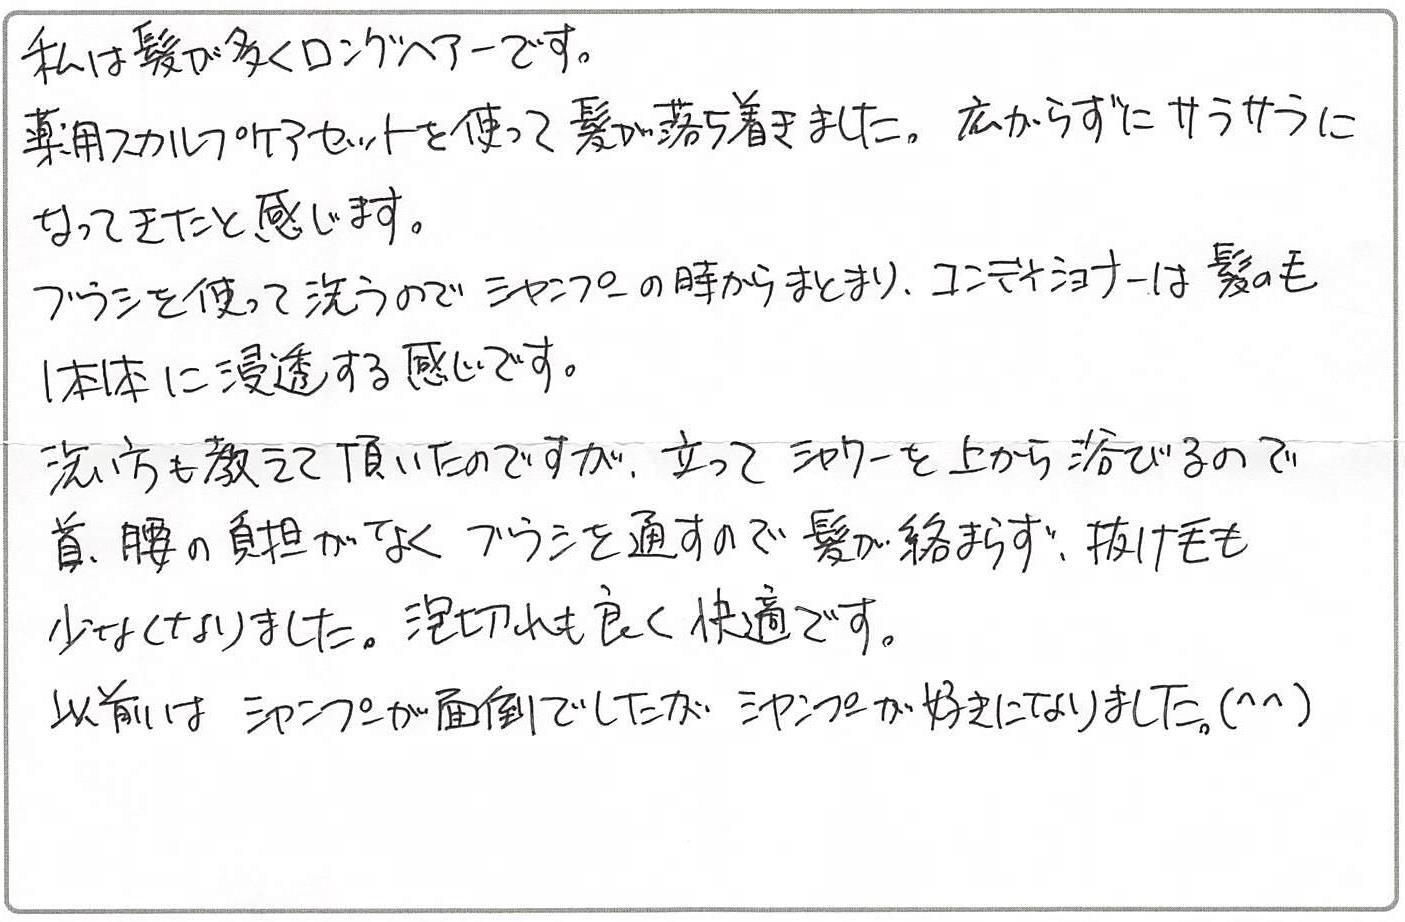 私は髪が多くロングヘアーです。
薬用スカルプケアセットを使って髪が落ち着きました。広がらずにサラサラに
なってきたと感じます。
ブラシを使って洗うのでシャンプーの時からまとまり、コンディショナーは髪の毛
1本1本に浸透する感じです。
洗い方も教えて頂いたのですが、立ってシャワーを上から浴びるので
首、腰の負担がなくブラシを通すので髪が絡まらず、抜け毛も
少なくなりました。泡切れも良く快適です。
以前はシャンプーが面倒でしたがシャンプーが好きになりました。(^^)